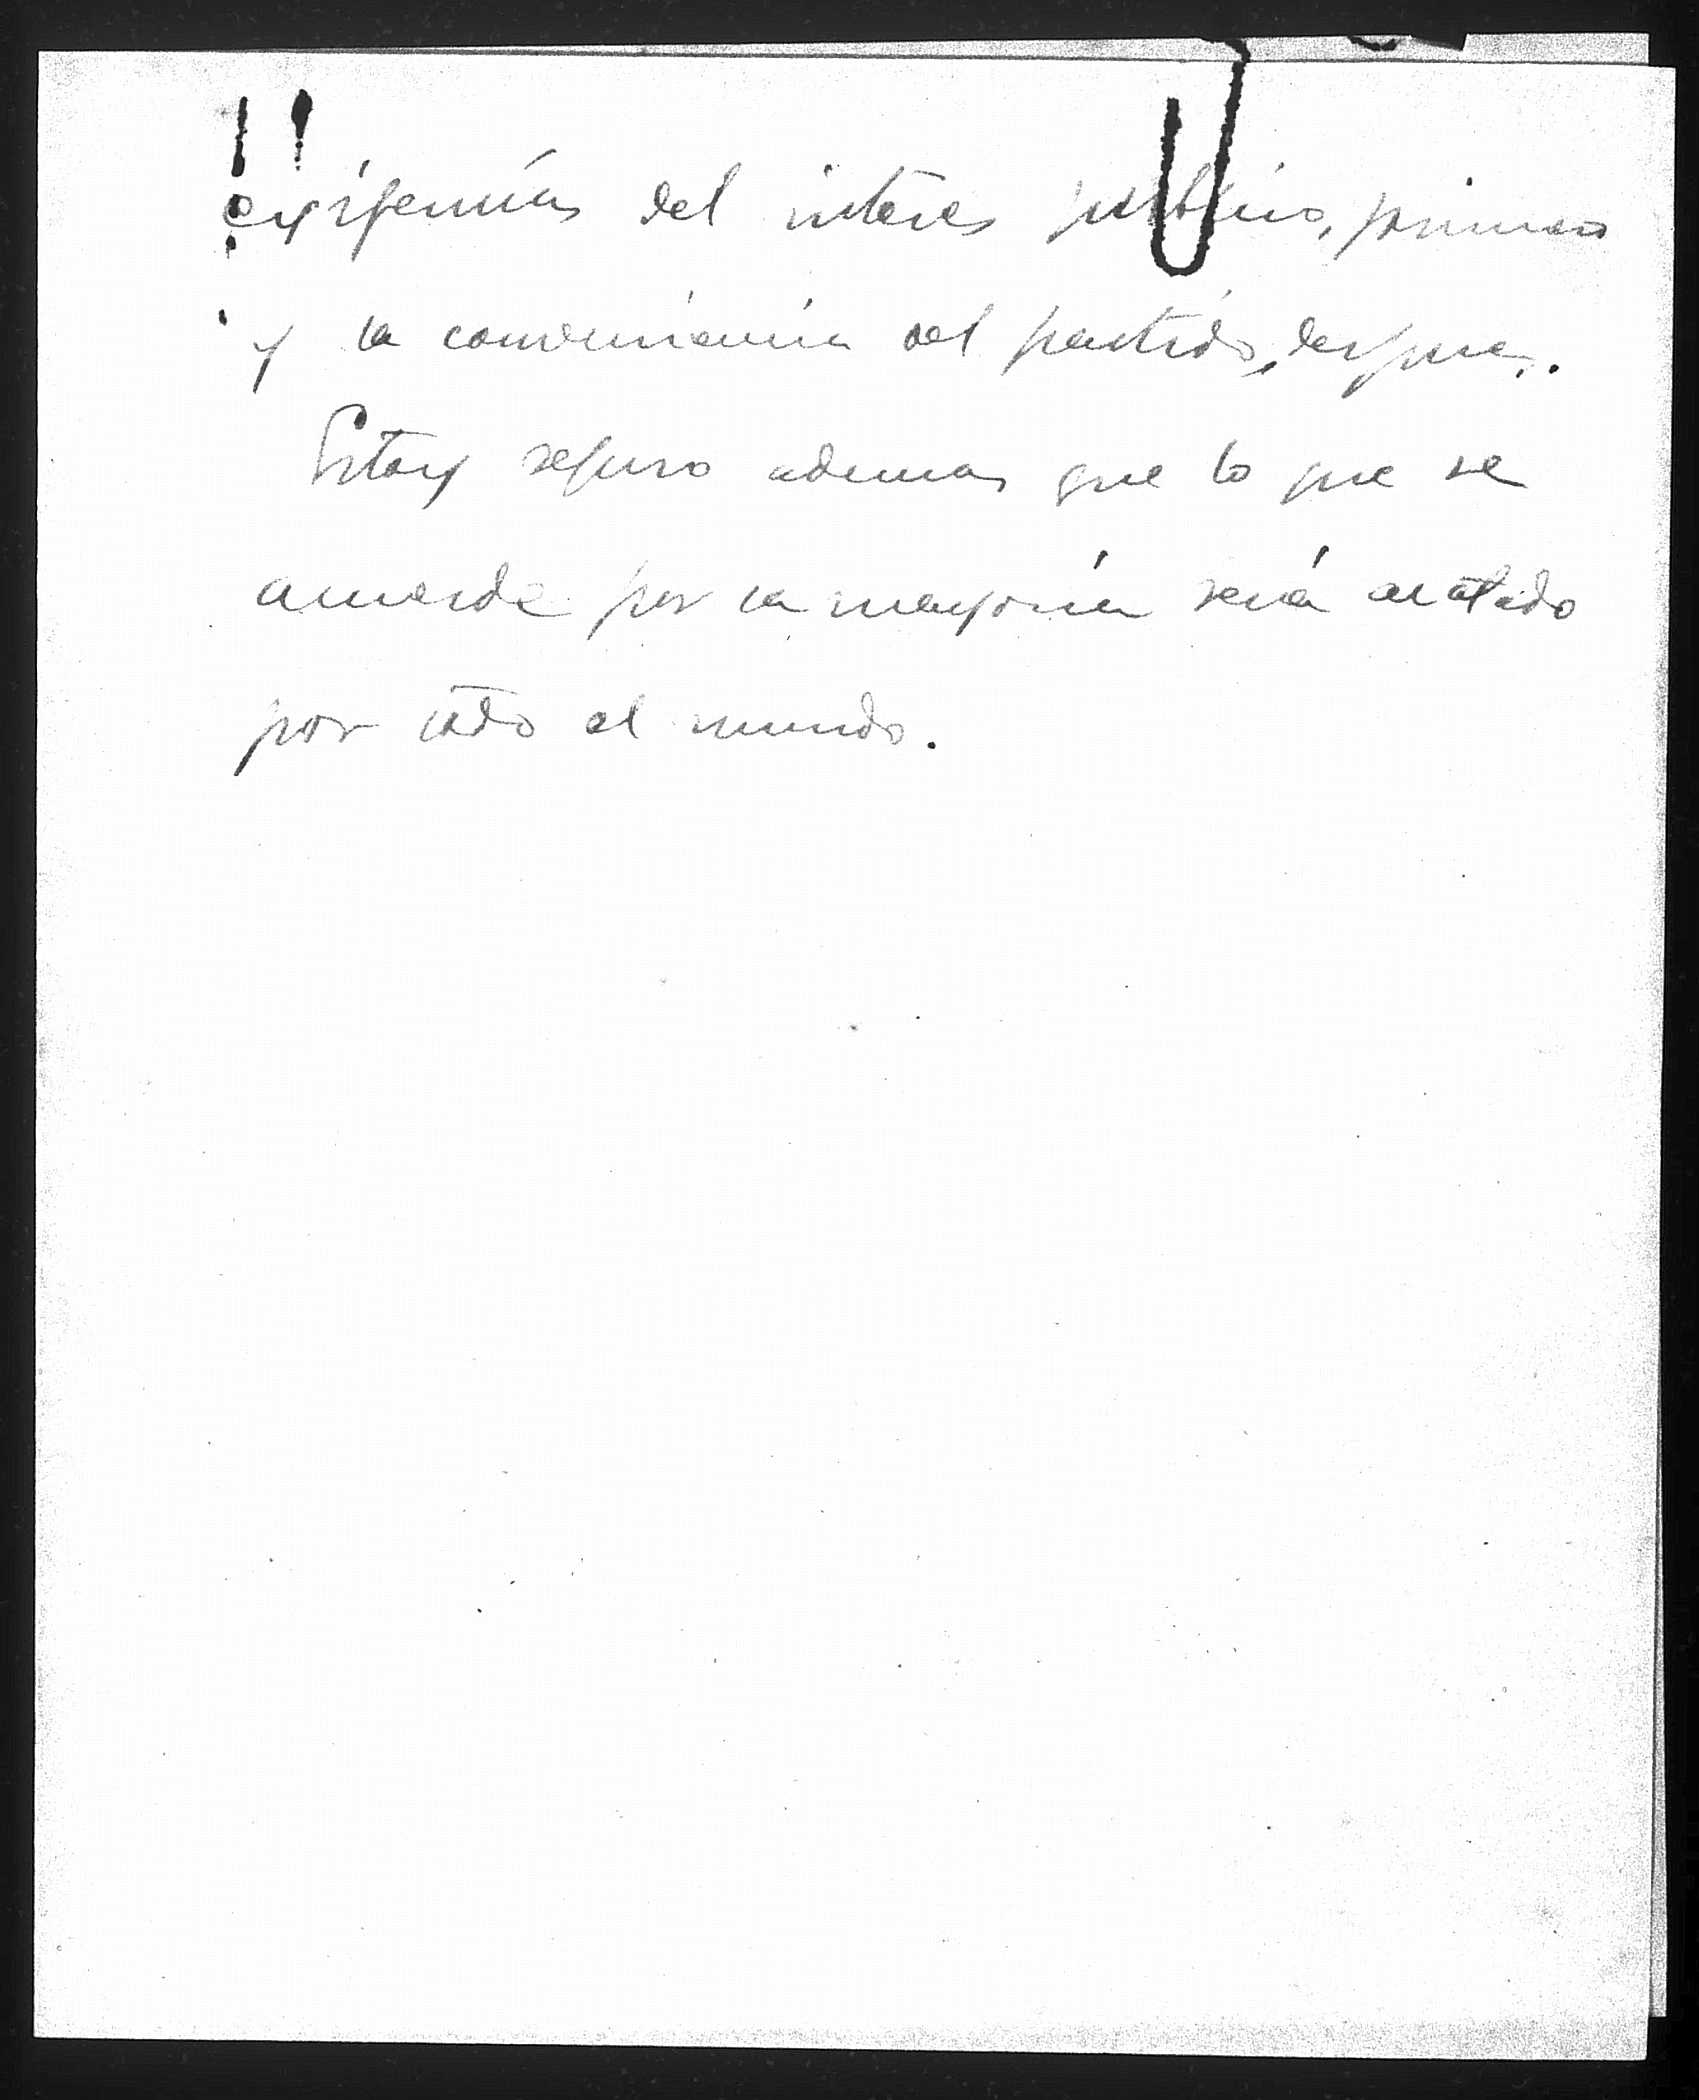 exigencias del interes publico, primero
y la conveniencia del partido, despues.
Estoy seguro ademas que lo que se
acuerde por la mayoría será acatado
por todo el mundo.